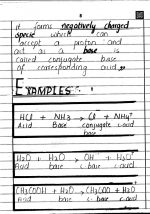 it forms negatively charged
specie which can
accept a proton and
act as a base is
called conjugate base
of corresponding acid.
EXAMPLES:
HCl + NH3 → Cl⁻ + NH4⁺
Acid Base conjugate c.acid
base
H2O + H2O → OH⁻ + H3O⁺
Acid base c.base c.acid
CH3COOH + H2O → CH3COO⁻ + H3O⁺
Acid base c.base c.acid